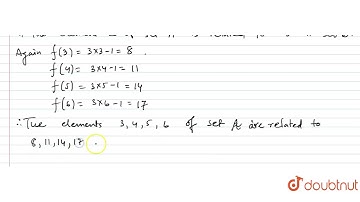 Again f(3) = 3×3-1 = 8 .
f(4) = 3×4-1 = 11
f(5) = 3×5-1 = 14
f(6) = 3×6-1 = 17
∴ The elements 3, 4, 5, 6 of set A are related to
8, 11, 14, 17 .
doubtnut